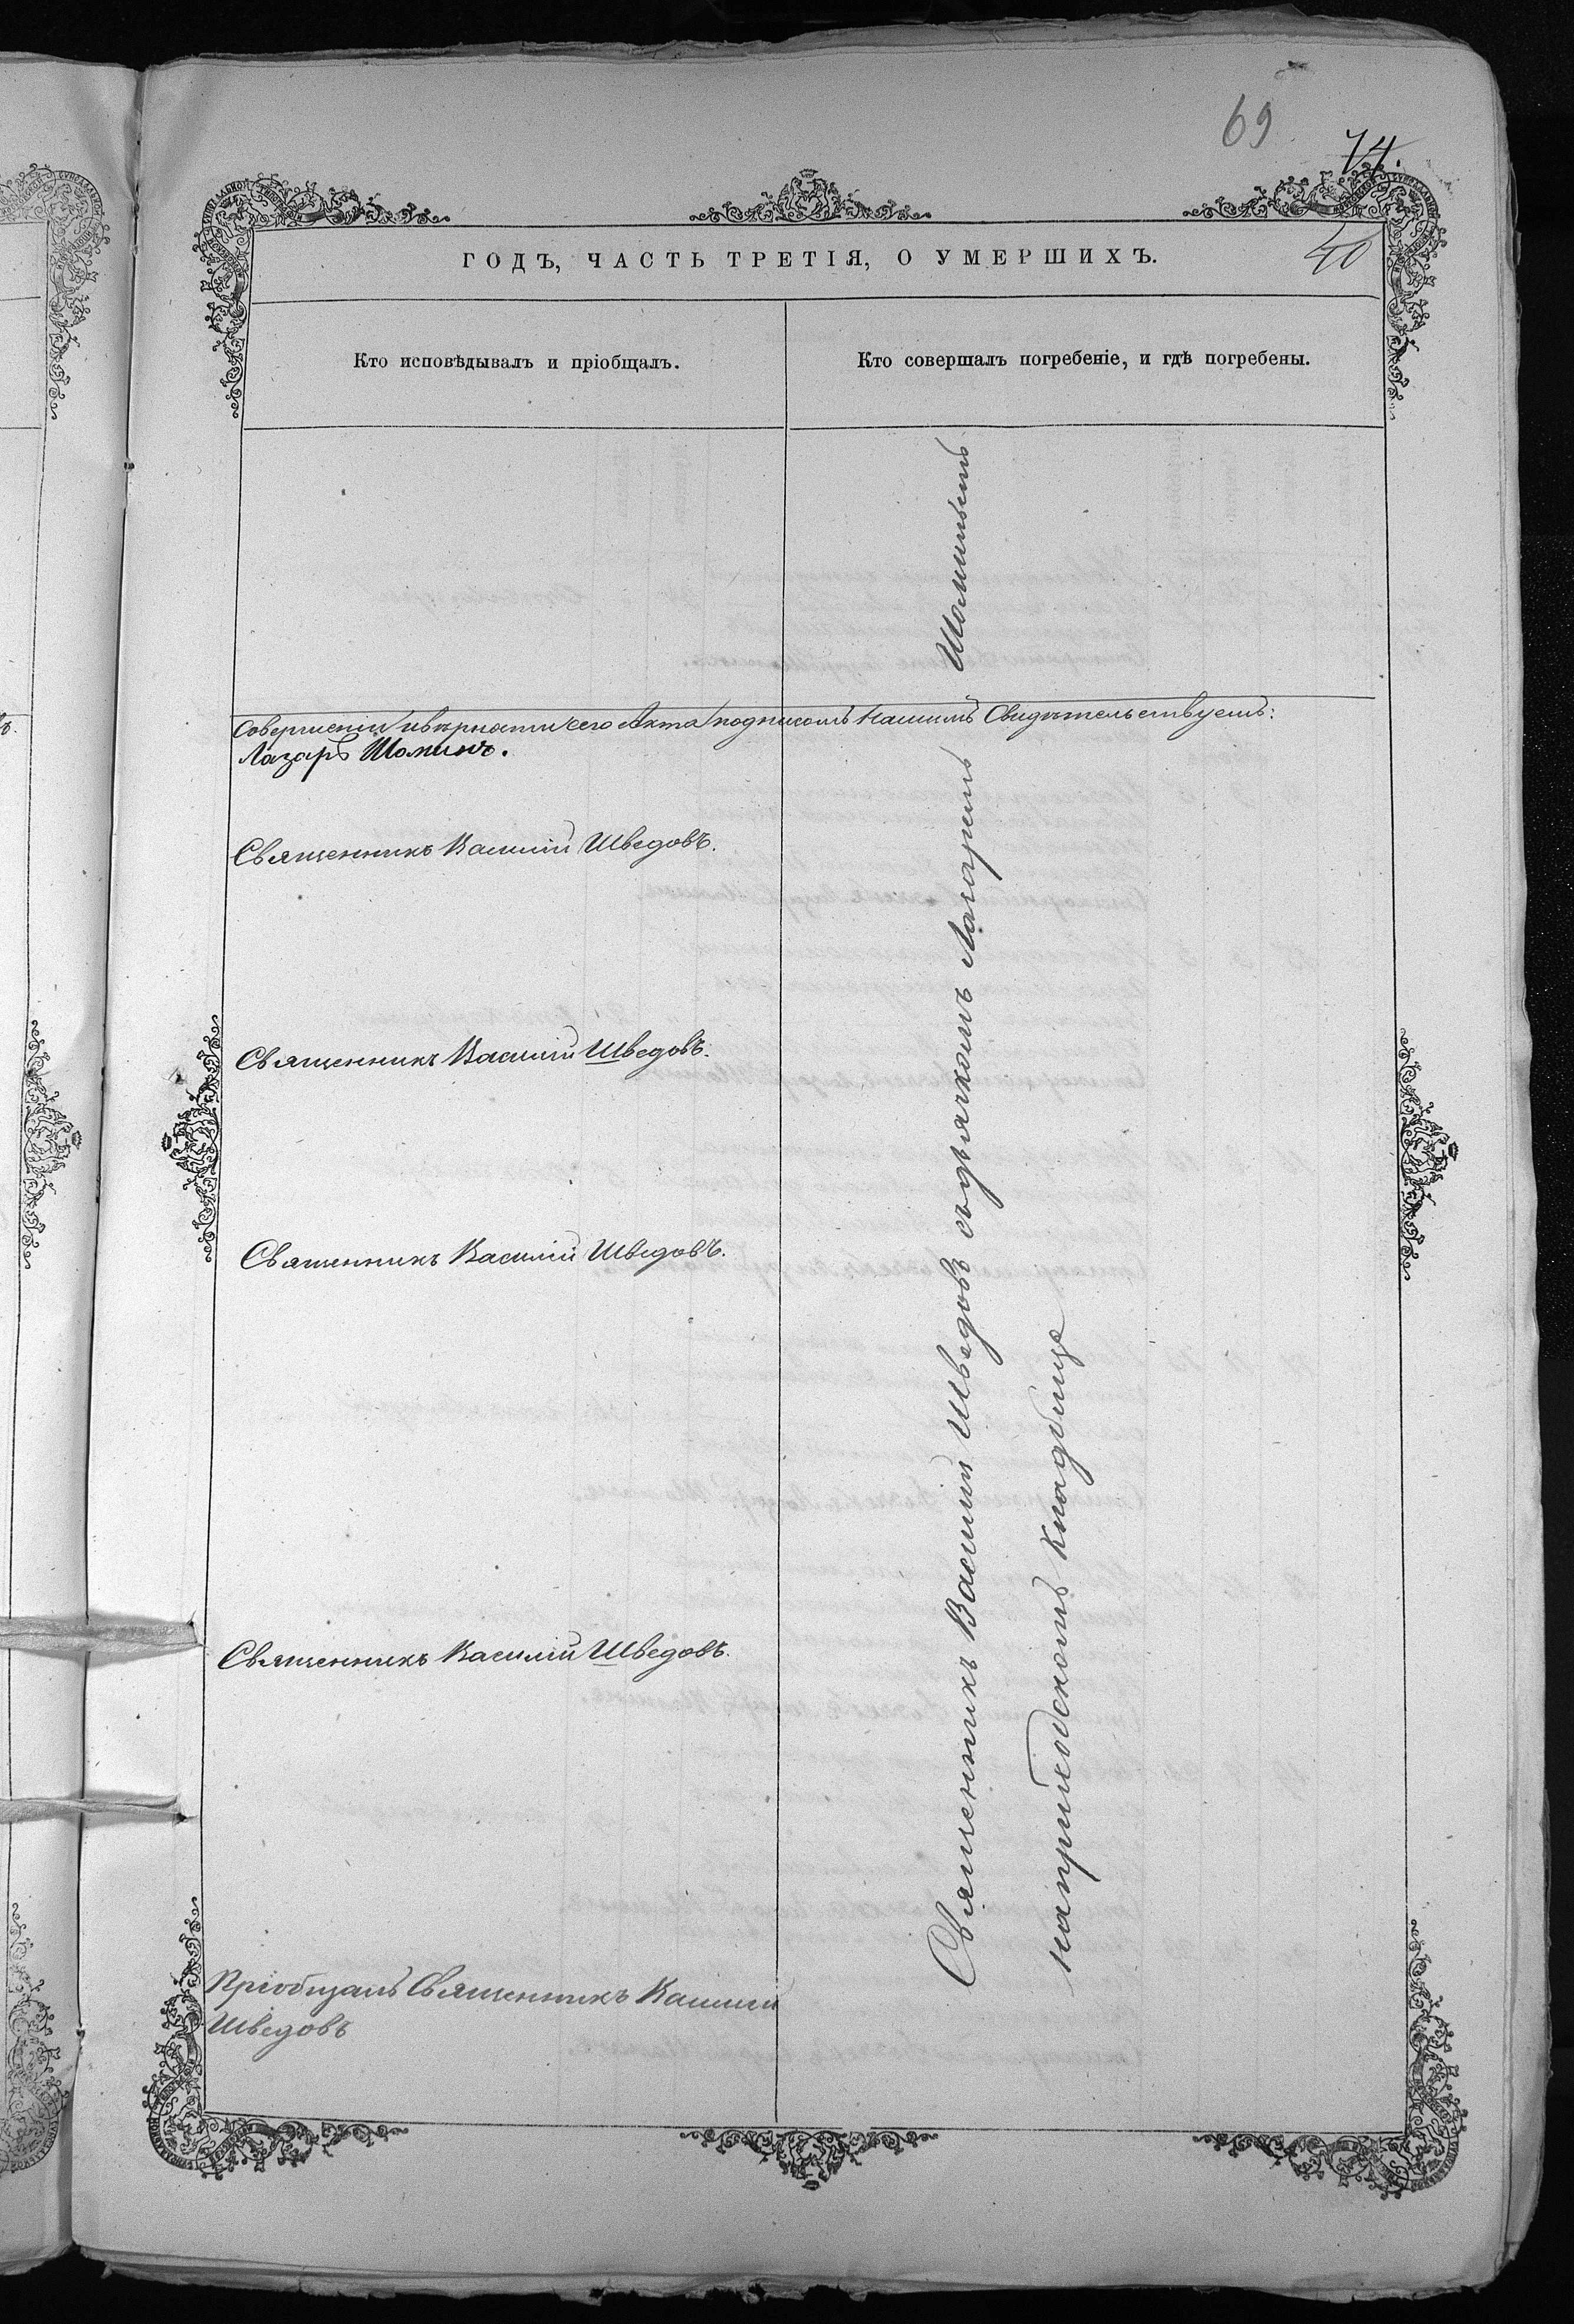 69
74.
ГОДЪ, ЧАСТЬ ТРЕТІЯ, О УМЕРШИХЪ.
40
Кто исповѣдывалъ и пріобщалъ.
Кто совершалъ погребеніе, и гдѣ погребены.
совершеніи и вѣрности сего Акта подписомъ Нашимъ Свидѣтельствуемъ:
Лазарь Шоминъ.
Священникъ Василій Шведовъ.
Священникъ Василій Шведовъ.
Священникъ Василій Шведовъ.
Священникъ Василій Шведовъ.
Пріобщалъ Священникъ Василій
Шведовъ
Священникъ Василій Шведовъ съ дьячкомъ Лазаремъ Шоминымъ
на приходскомъ кладбище